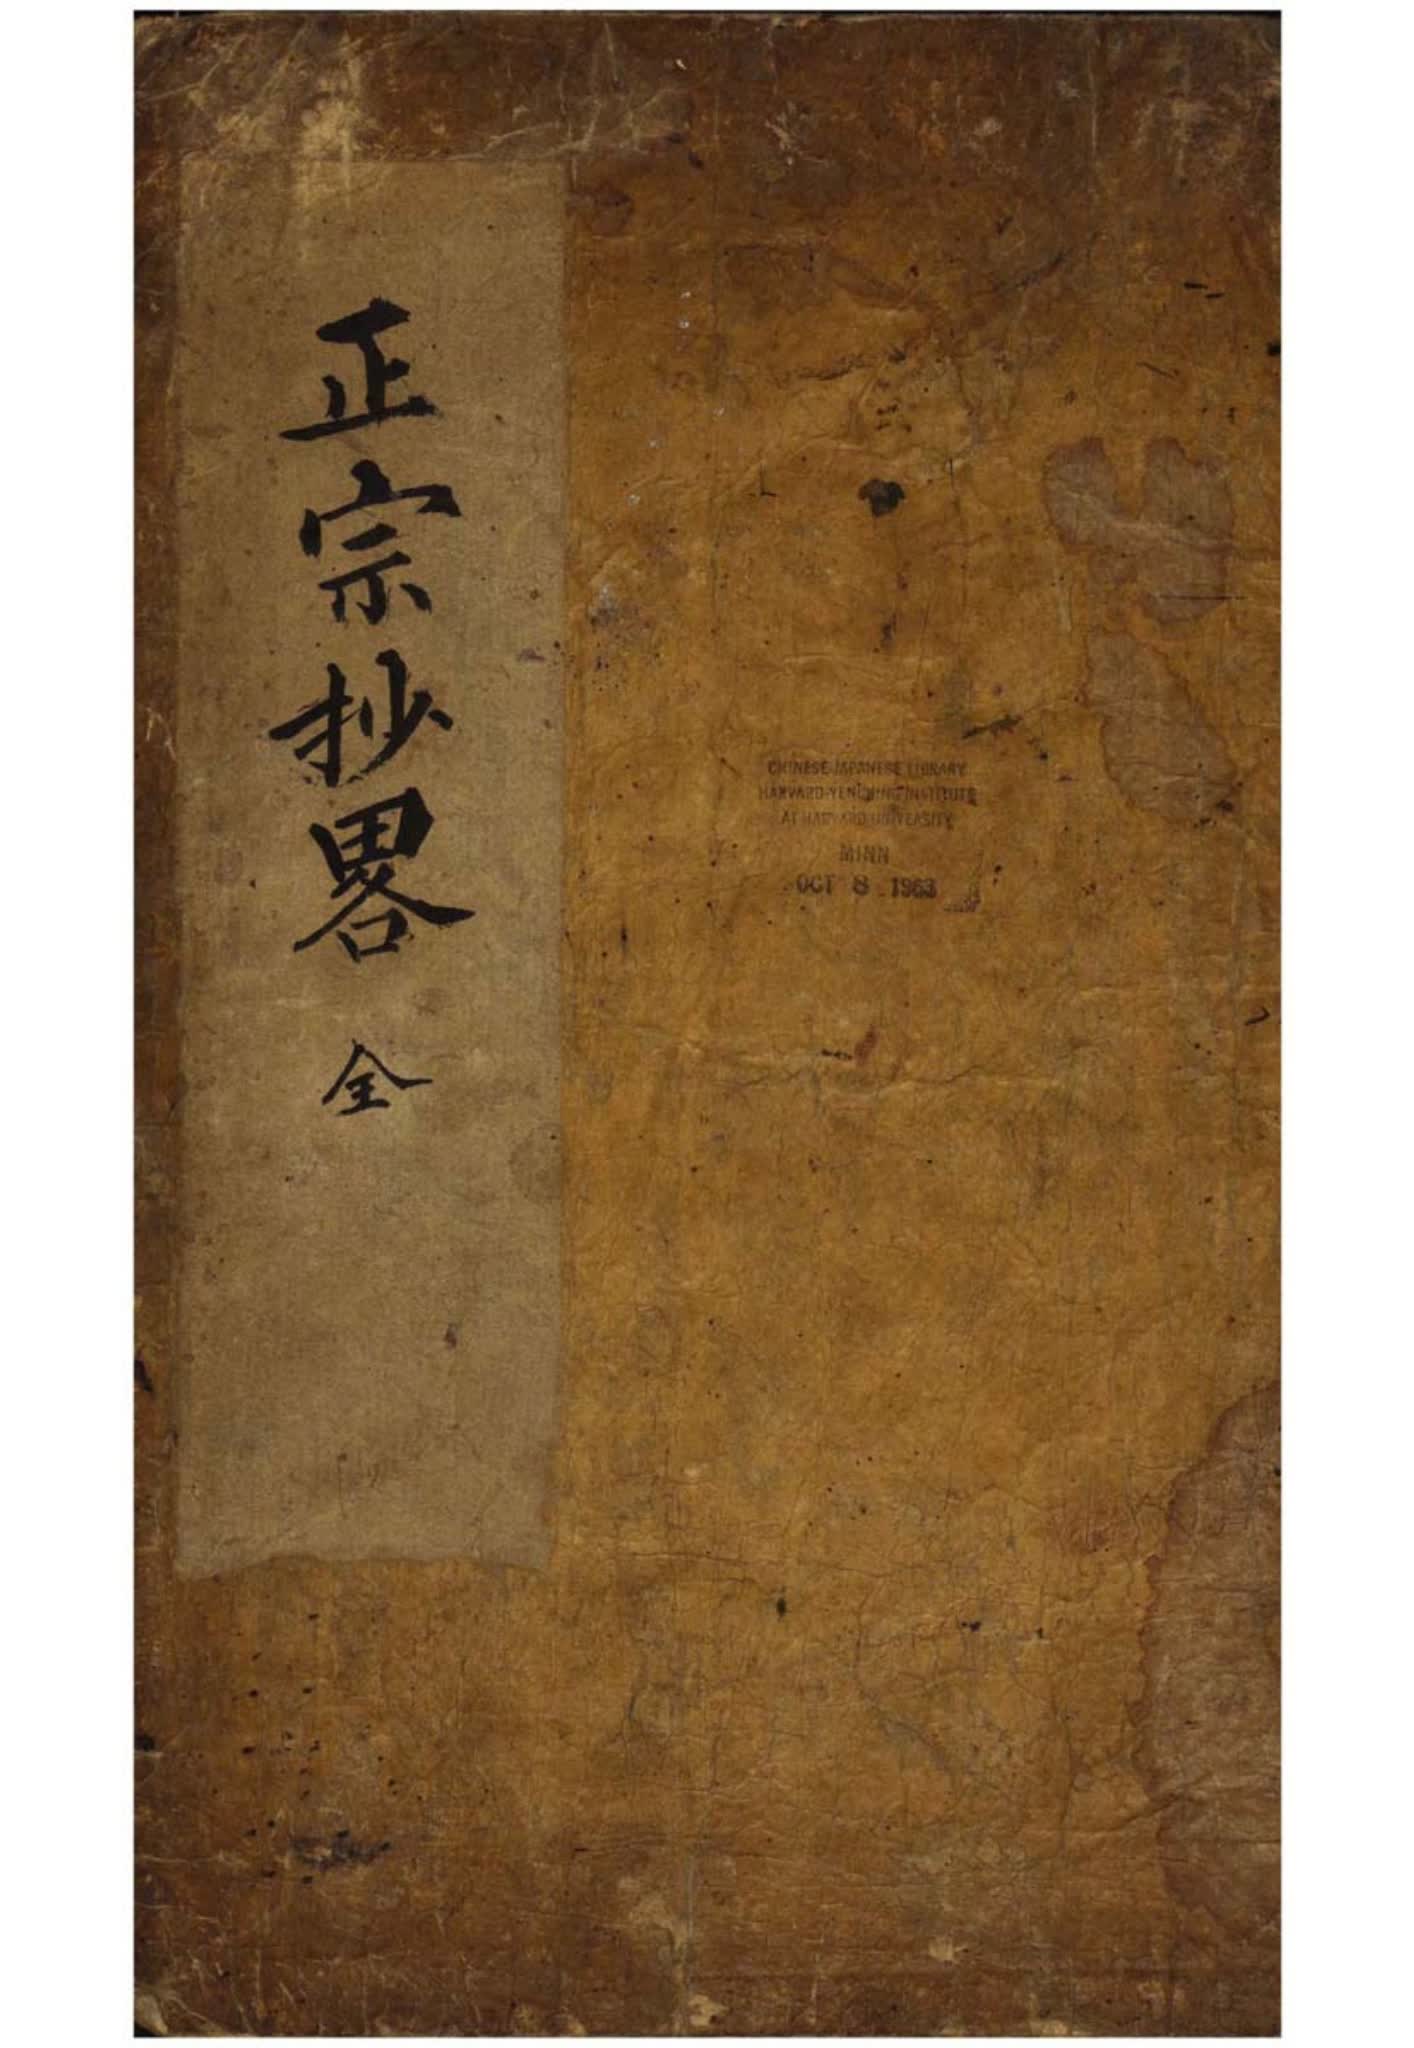 正宗抄畧 全
CHINESE-JAPANESE LIBRARY
HARVARD-YENCHING INSTITUTE
AT HARVARD UNIVERSITY
MINN
OCT 8 1963